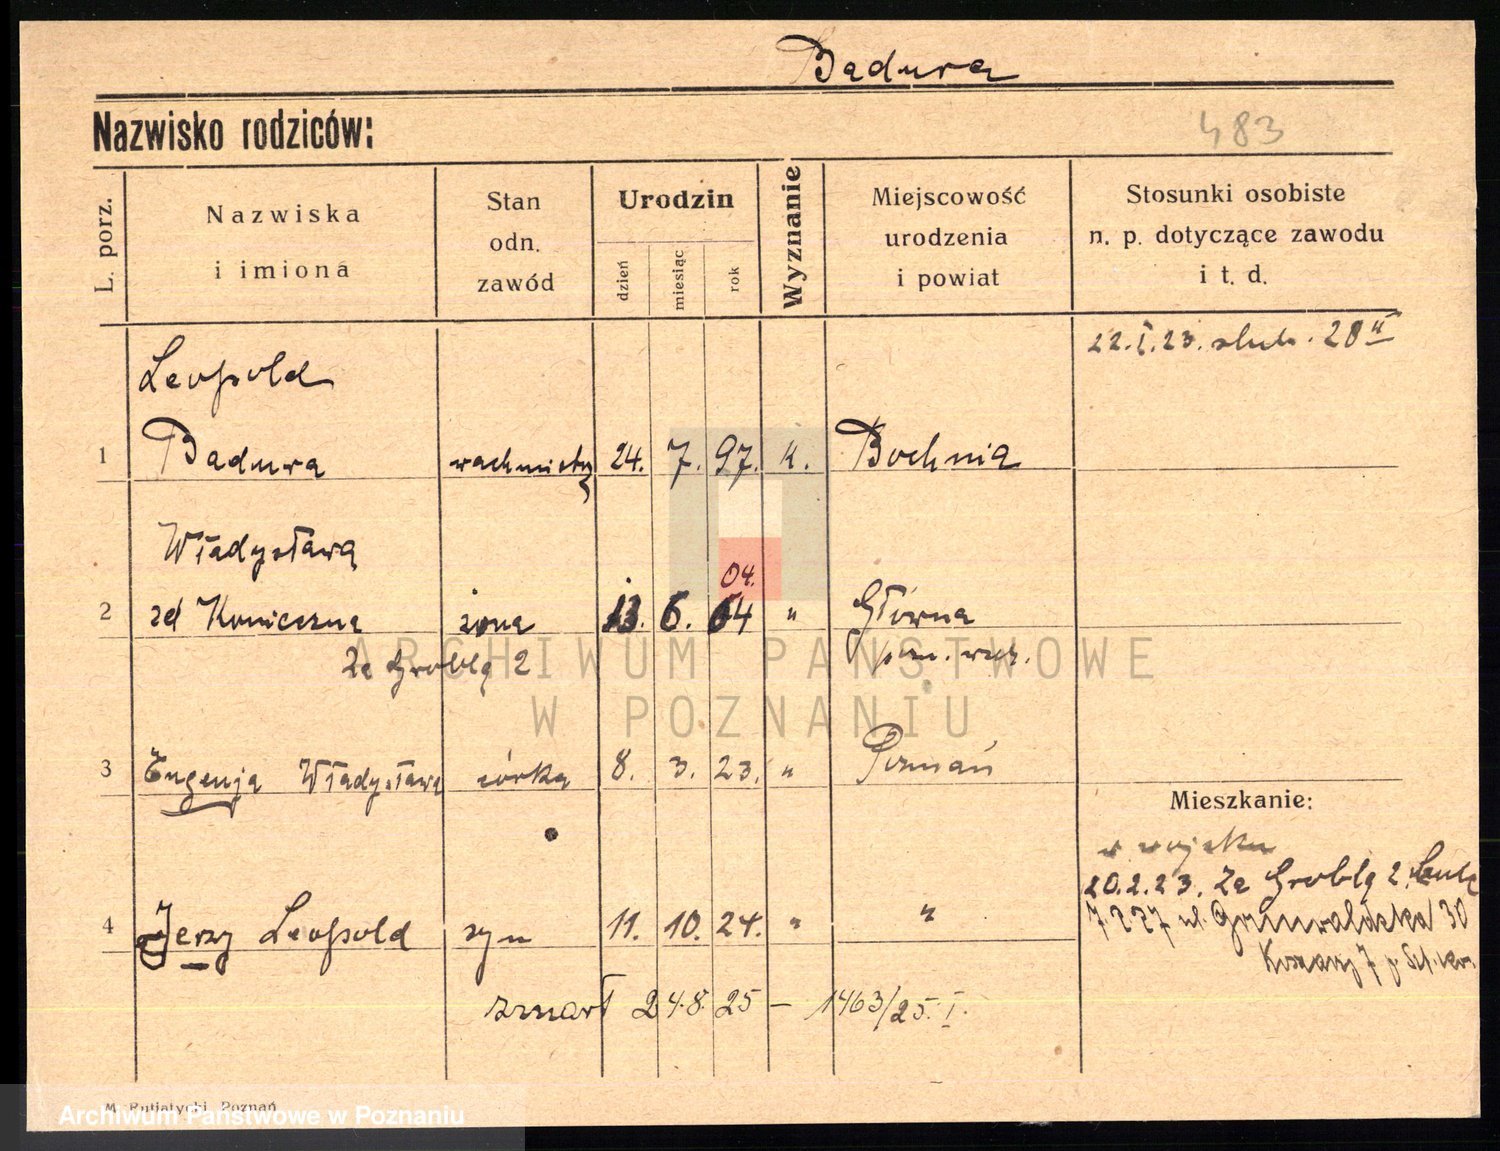 Badura
Nazwisko rodziców:
483
L. porz.
Nazwiska
i imiona
Stan
odn.
zawód
Urodzin
dzień
miesiąc
rok
Wyznanie
Miejscowość
urodzenia
i powiat
Stosunki osobiste
n. p. dotyczące zawodu
i t. d.
22.I.23. slub. 28
Leopold
1 Badura wachmistrz 24. 7. 97. K. Bochnia
Władysława
04.
2 zd Konieczna żona 13. 6. 64 " Główna
Za Groblą 2
3 Eugenja Władysława córka 8. 3. 23. " Poznań
Mieszkanie:
w wojsku
20.2.23. Za Groblą 2.
ul. Grunwaldzka 30
4 Jerzy Leopold syn 11. 10. 24. " "
zmarł 24.8.25 – 1463/25. I.
M. Putiatycki, Poznań
ARCHIWUM PAŃSTWOWE
W POZNANIU
Archiwum Państwowe w Poznaniu